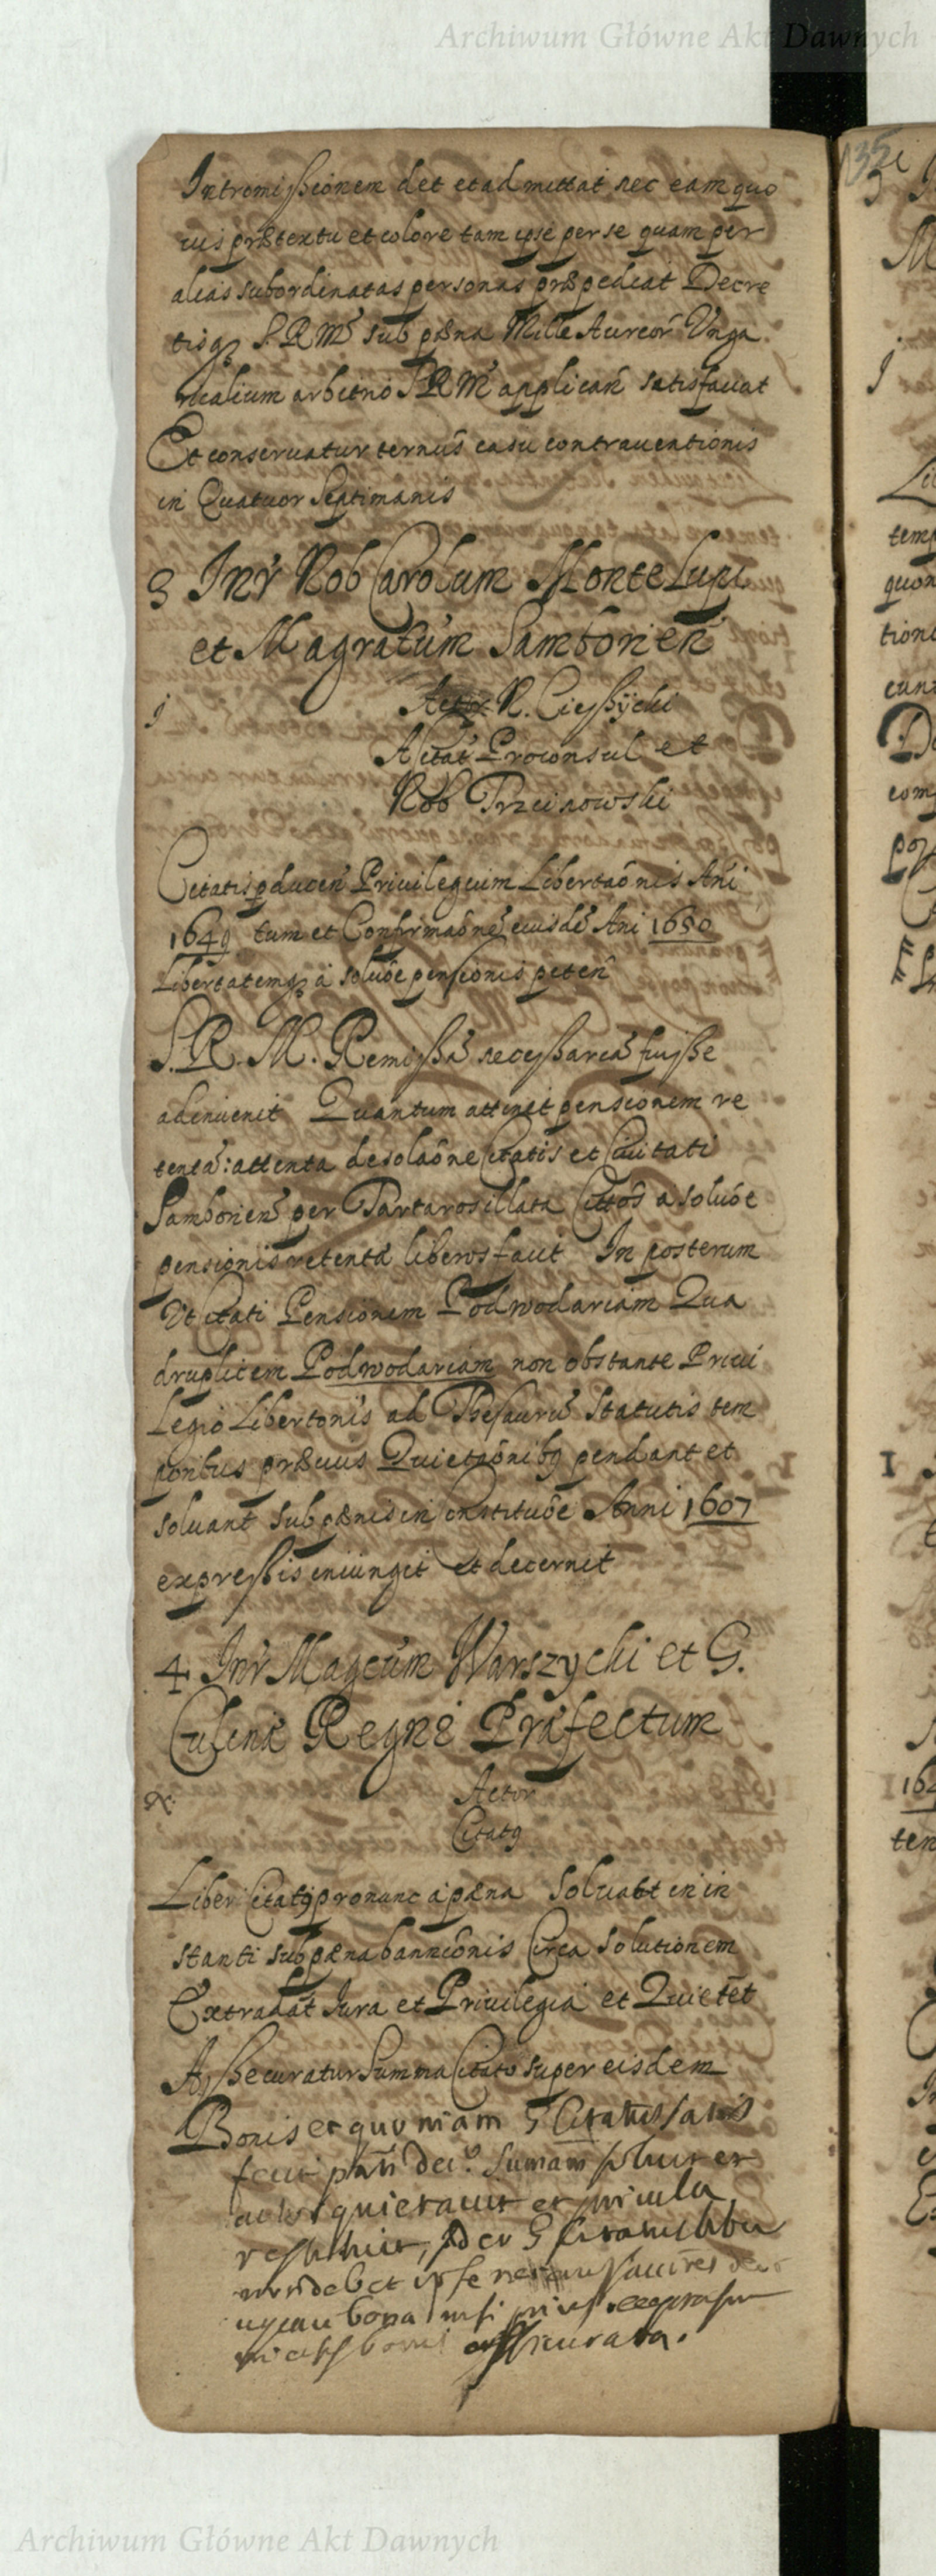 Archiwum Główne Akt Dawnych
Intromissionem det et admittat nec eam quo
vis prætextu et colore tam ipse per se quam per
alias subordinatas personas præpediat Decre
tisq S. R. Mtis sub pæna Mille Aureor Unga
ricalium arbitrio S R M applican satisfaciat
Et conservatur ternus casu contraventionis
in Quatuor Septimanis
3 Intr Nob Carolum Montelupi
et Magratum Samborien
Actor N. Ciessycki
A Citat Proconsul et
Nob Trzcinowski
Citatis pducen Privilegium Libertaonis Ani
1649 tum et Confirmaone eiusde Ani 1650
Libertatemq à soluōe pensionis peten
S. R. M. Remissa necessaria fuisse
adinvenit Quantum attinet pensionem re
tenta: attenta desolaone Citatis et Civitati
Samborien per Tartaros illata Cittos a soluōe
pensionis retenta liberos facit In posterum
Ut Citati Pensionem Podwodariam Qua
druplicem Podwodariam non obstante Privi
legio Libertonis ad Thesauru statutis tem
poribus præviis Quietaonibq pendant et
soluant sub pænis in Constituōe Anni 1607
expressis iniungit et decernit
4 Intr Magcum Warszycki et G.
Culina Regni Præfectum
Actor
Citatq
Liber Citatq pro nunc a pæna Soluat in in
stanti sub pæna bannionis Circa Solutionem
Extradat Iura et Privilegia et Quietet
Assecuratur Summa Citato super eisdem
Bonis et quoniam G Citatus satis
fecit Sumam soluit et
quietavit et
restituit, Ideo G Citatus
debet ipse
bona nisi prius
bonis assicurata.
Archiwum Główne Akt Dawnych